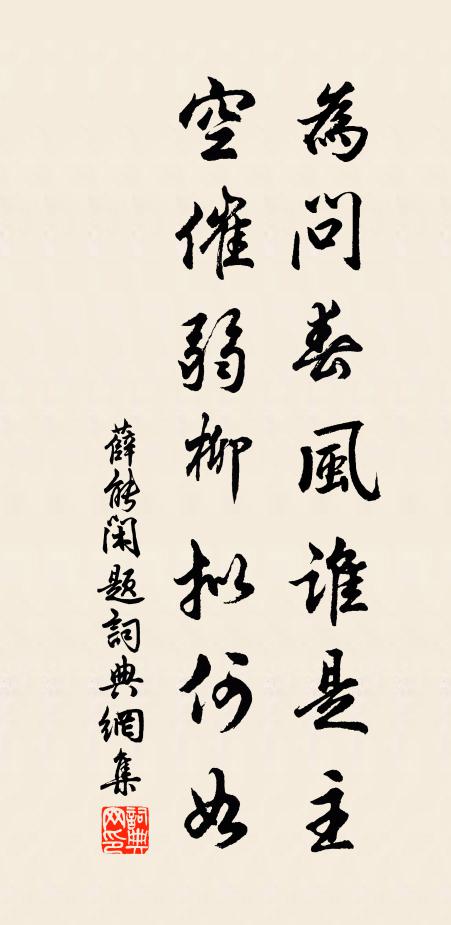 為問春風誰是主
空催弱柳拟何如
薛能閑題詞典網集
詞典网印